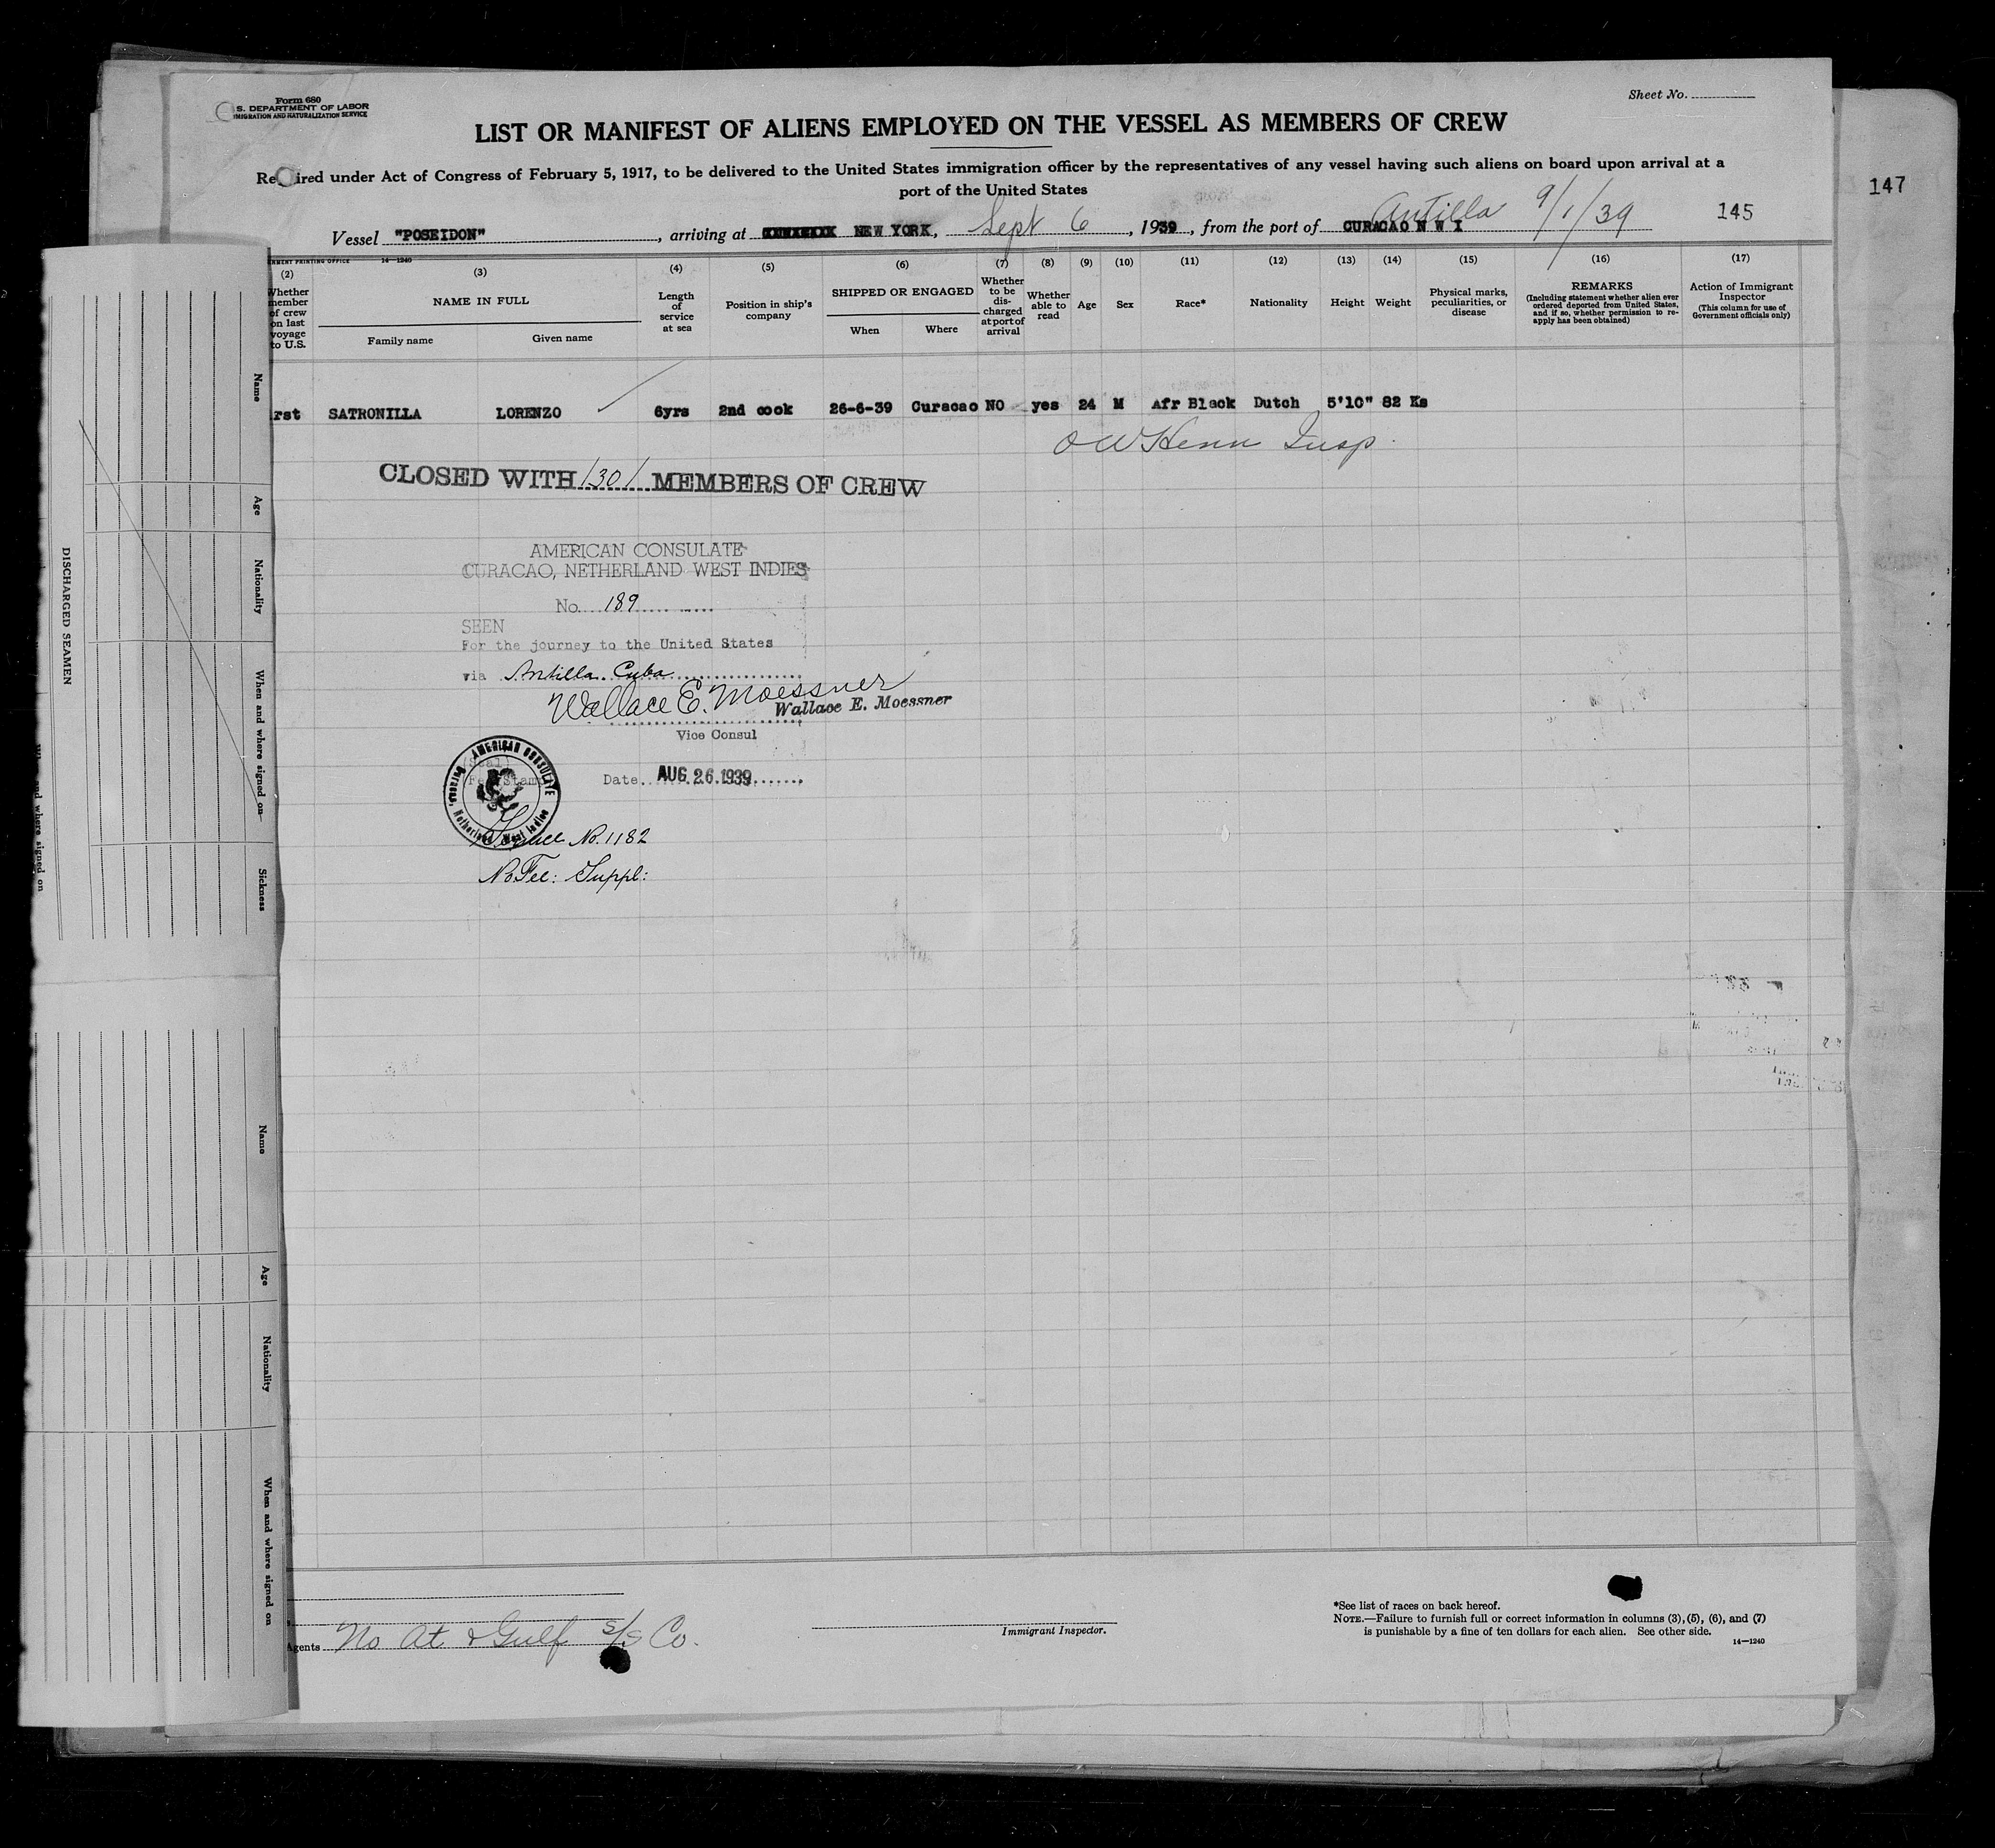 Form 680
S. DEPARTMENT OF LABOR
IMIGRATION AND NATURALIZATION SERVICE
Sheet No.
LIST OR MANIFEST OF ALIENS EMPLOYED ON THE VESSEL AS MEMBERS OF CREW
Re ired under Act of Congress of February 5, 1917, to be delivered to the United States immigration officer by the representatives of any vessel having such aliens on board upon arrival at a
port of the United States
147
145
Antilla 9/1/39
Vessel "POSEIDON", arriving at NEW YORK, Sept 6, 1939, from the port of CURACAO N W I
NMENT PRINTING OFFICE 14—1240
(2) (3) (4) (5) (6) (7) (8) (9) (10) (11) (12) (13) (14) (15) (16) (17)
Whether member of crew on last voyage to U.S.
NAME IN FULL
Family name Given name
Length of service at sea
Position in ship's company
SHIPPED OR ENGAGED
When Where
Whether to be discharged at port of arrival
Whether able to read
Age
Sex
Race*
Nationality
Height
Weight
Physical marks, peculiarities, or disease
REMARKS
(Including statement whether alien ever ordered deported from United States, and if so, whether permission to re-apply has been obtained)
Action of Immigrant Inspector
(This column for use of Government officials only)
rst SATRONILLA LORENZO 6yrs 2nd cook 26-6-39 Curacao NO yes 24 M Afr Black Dutch 5'10" 82 Ks
O W Henn Insp.
CLOSED WITH 130/ MEMBERS OF CREW
AMERICAN CONSULATE
CURACAO, NETHERLAND WEST INDIES
No. 189
SEEN
For the journey to the United States
via Antilla. Cuba
Wallace E. Moessner
Wallace E. Moessner
Vice Consul
(Seal)
AMERICAN CONSULATE
Curacao, Netherland West Indies
Date AUG. 26. 1939
No. 1182
No Fee: Suppl:
DISCHARGED SEAMEN
Name
Age
Nationality
When and where signed on
Sickness
Name
Age
Nationality
When and where signed on
Agents No At & Gulf S/S Co.
Immigrant Inspector.
*See list of races on back hereof.
NOTE.—Failure to furnish full or correct information in columns (3), (5), (6), and (7)
is punishable by a fine of ten dollars for each alien. See other side.
14—1240